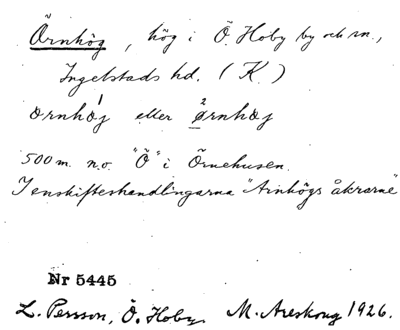 Örnhög, hög i Ö. Hoby by och sn.,
Ingelstads hd. (K)
ornhøj eller ørnhøj
500 m. n.o. "Ö" i Örnehusen.
I enskifteshandlingarna "Arnhögs åkrarne"
Nr 5445
L. Persson, Ö. Hoby. M. Areskoug 1926.